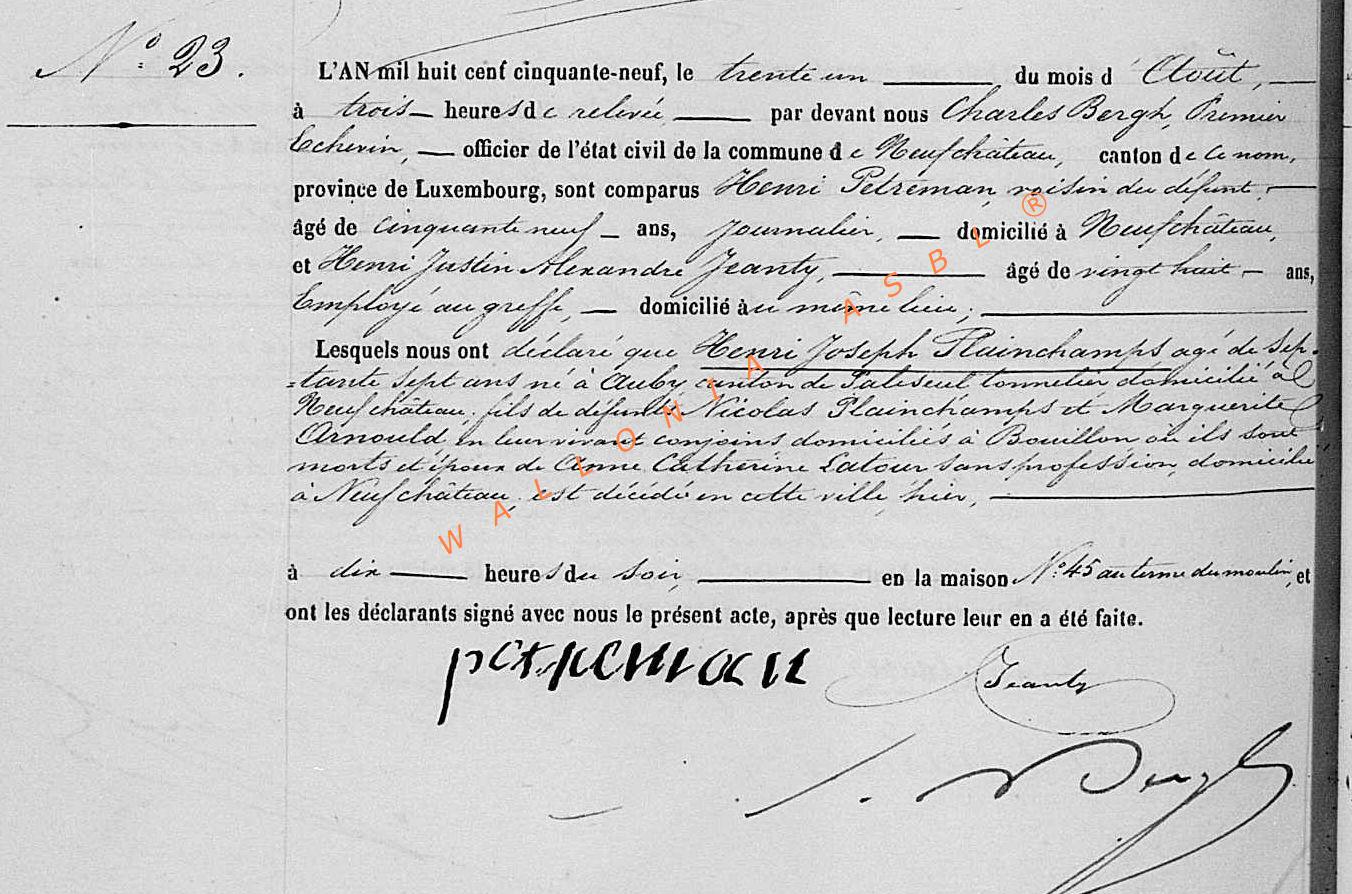 N° 23.
L'AN mil huit cent cinquante-neuf, le trente un du mois d'Août,
à trois heures de relevée, par devant nous Charles Bergh, Premier
Echevin, officier de l'état civil de la commune de Neufchâteau, canton de ce nom,
province de Luxembourg, sont comparus Henri Petreman, voisin du défunt,
âgé de cinquante neuf ans, Journalier, domicilié à Neufchâteau,
et Henri Justin Alexandre Jeanty, âgé de vingt huit ans,
Employé au greffe, domicilié au même lieu;
Lesquels nous ont déclaré que Henri Joseph Plainchamps agé de Sep-
=tante sept ans né à Auby canton de Paliseul tonnelier domicilié à
Neufchâteau; fils de défunts Nicolas Plainchamps et Marguerite
Arnould en leur vivant conjoins domiciliés à Bouillon où ils sont
morts et époux de Anne Catherine Latour sans profession, domicilié
à Neufchâteau, est décédé en cette ville, hier,
à dix heures du soir, en la maison N° 45 au terme du moulin, et
ont les déclarants signé avec nous le présent acte, après que lecture leur en a été faite.
petreman
Jeanty
Bergh
WALLONIA ASBL ®